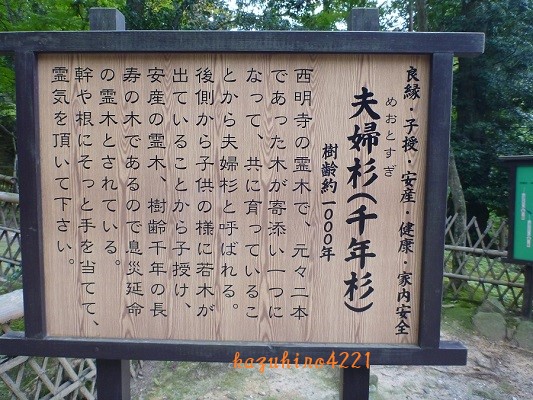 良縁・子授・安産・健康・家内安全
めおとすぎ
夫婦杉(千年杉)
樹齢約一〇〇〇年
西明寺の霊木で、元々二本
であった木が寄添い一つに
なって、共に育っているこ
とから夫婦杉と呼ばれる。
後側から子供の様に若木が
出ていることから子授け、
安産の霊木、樹齢千年の長
寿の木であるので息災延命
の霊木とされている。
幹や根にそっと手を当てて、
霊気を頂いて下さい。
kazuhiro4221